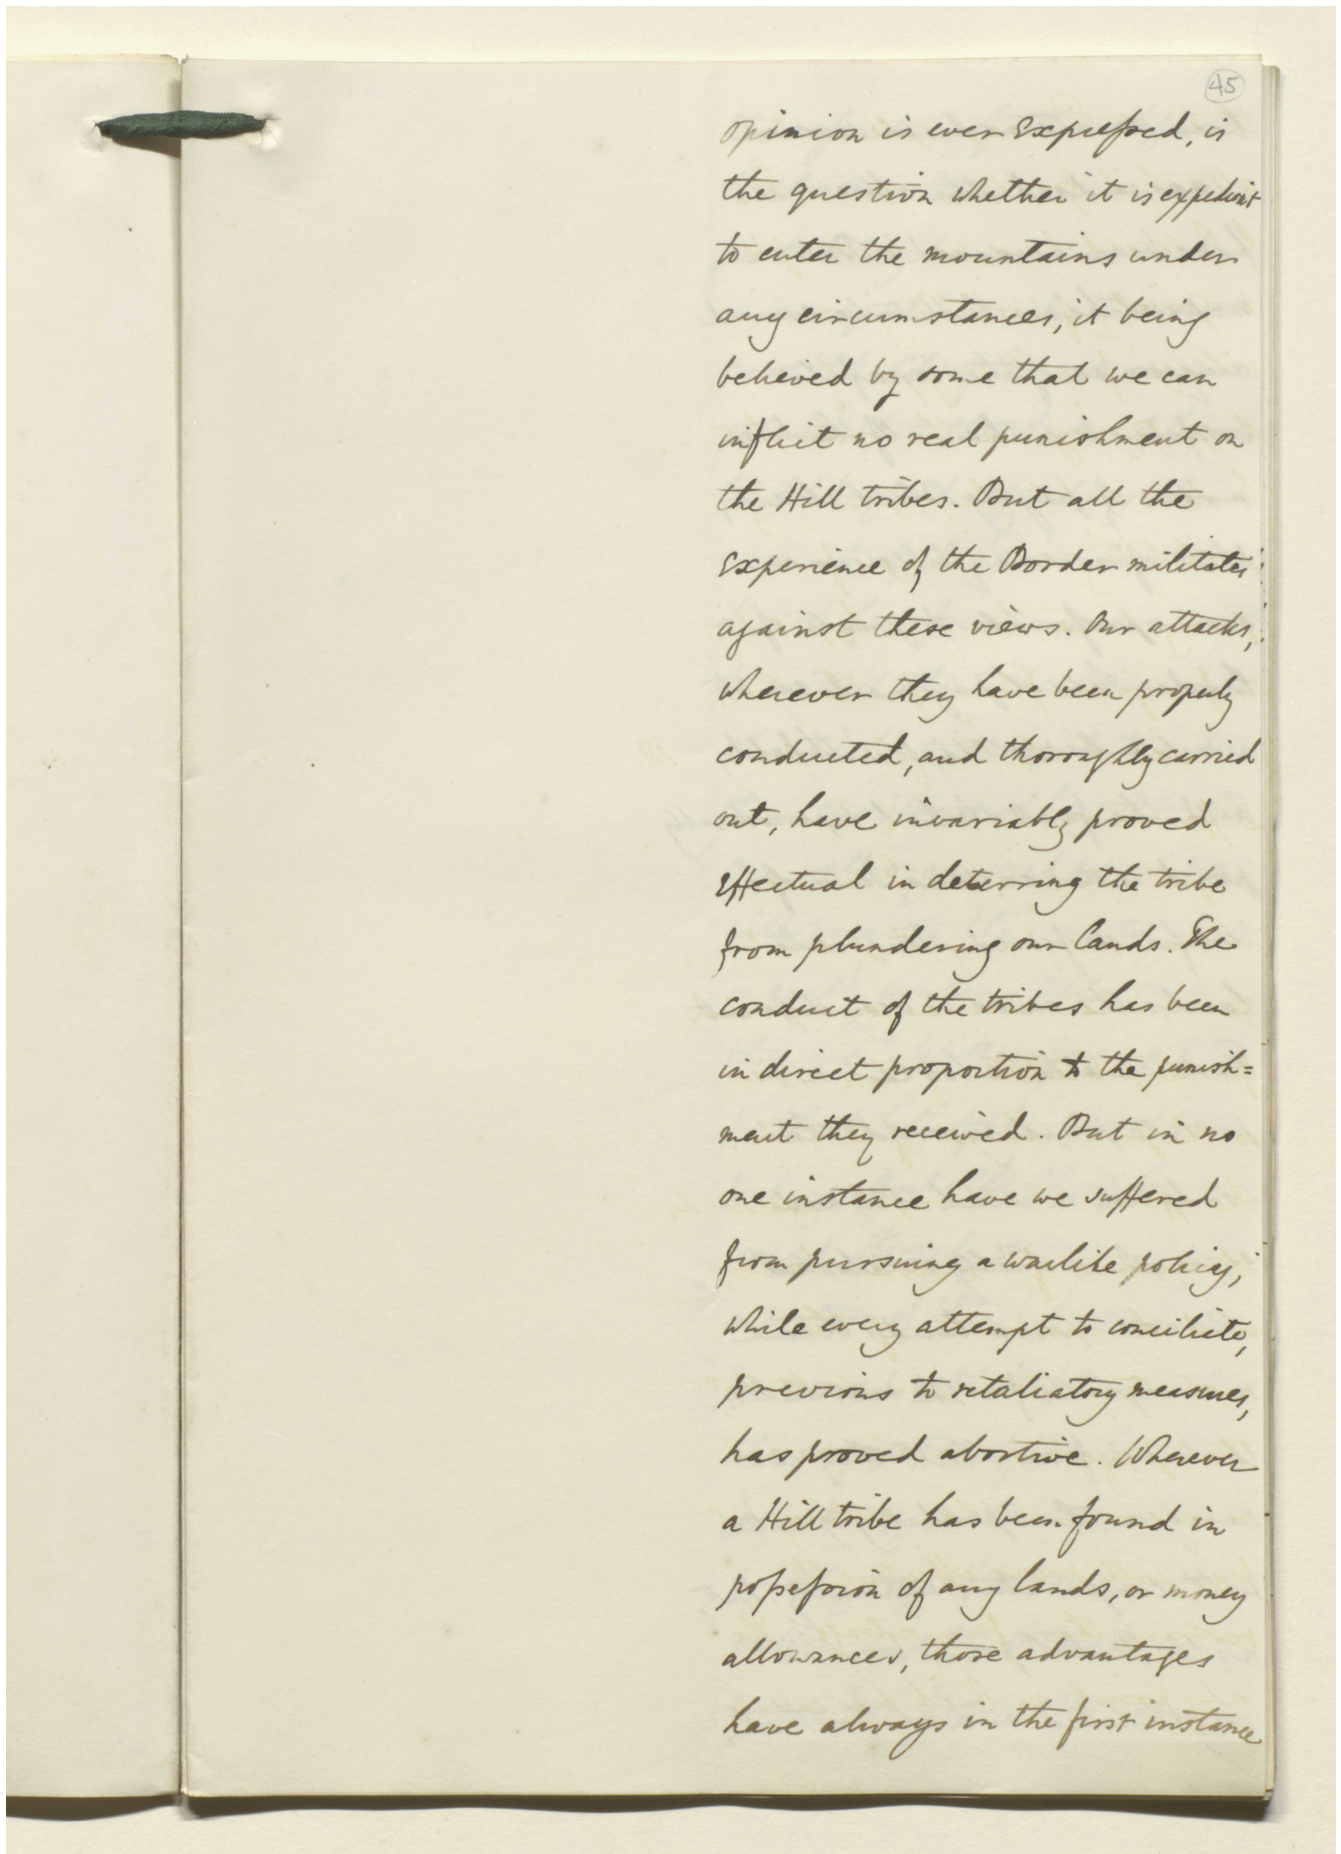 45
opinion is ever expressed, is
the question whether it is expedient
to enter the mountains under
any circumstances, it being
believed by some that we can
inflict no real punishment on
the Hill tribes. But all the
experience of the Border militates
against these views. Our attacks,
wherever they have been properly
conducted, and thoroughly carried
out, have invariably proved
effectual in deterring the tribe
from plundering our lands. The
conduct of the tribes has been
in direct proportion to the punish=
ment they received. But in no
one instance have we suffered
from pursuing a warlike policy,
while every attempt to conciliate,
previous to retaliatory measures,
has proved abortive. Wherever
a Hill tribe has been found in
possession of any lands, or money
allowances, those advantages
have always in the first instance